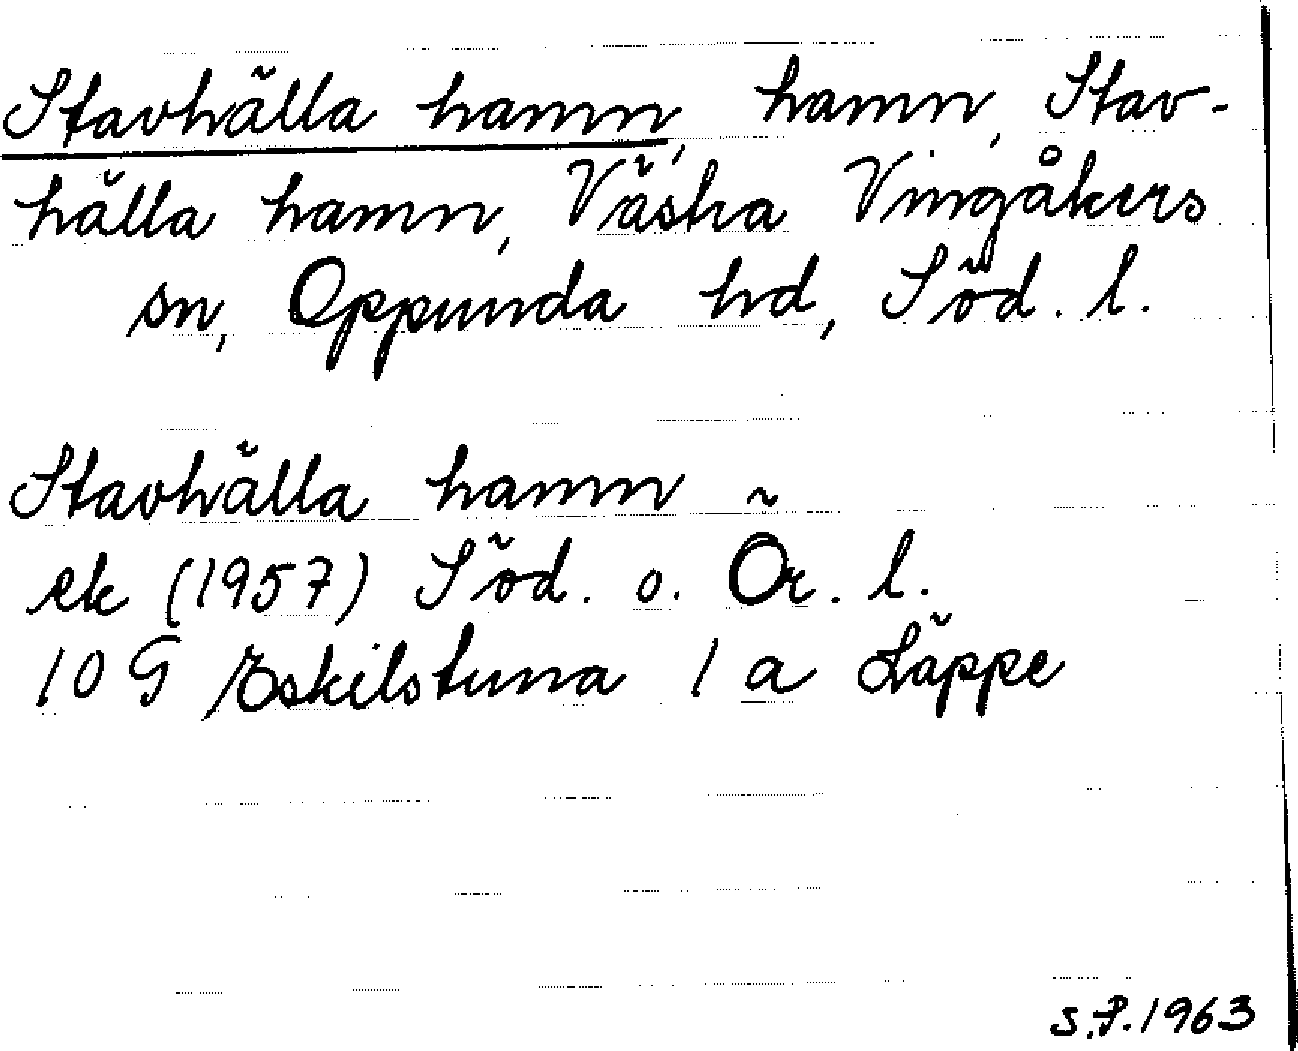 Stavhälla hamn, hamn, Stav-
hälla hamn, Västra Vingåkers
sn, Oppunda hd, Söd. l.
Stavhälla hamn
ek (1957) Söd. o. Ör. l.
10 G Eskilstuna 1 a Läppe
S.P. 1963